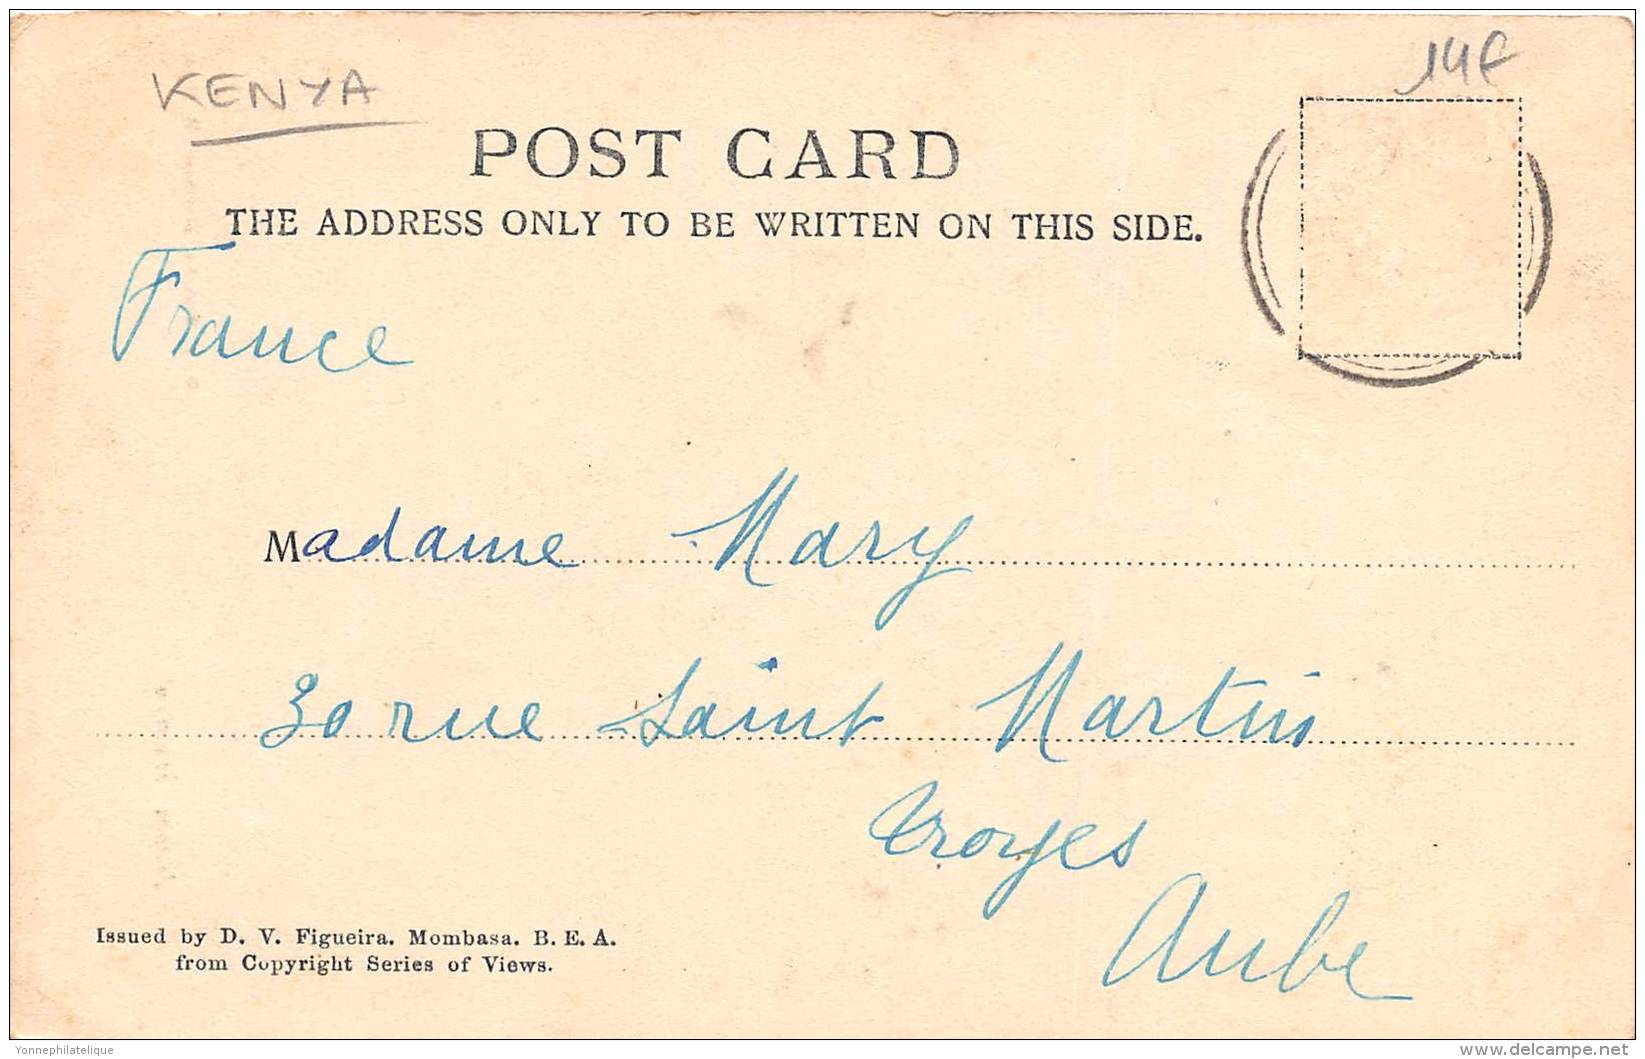 KENYA
14 F
POST CARD
THE ADDRESS ONLY TO BE WRITTEN ON THIS SIDE.
France
Madame Mary
30 rue Saint Martin
Troyes
Aube
Issued by D. V. Figueira. Mombasa. B. E. A.
from Copyright Series of Views.
Yonnephilatelique
www.delcampe.net